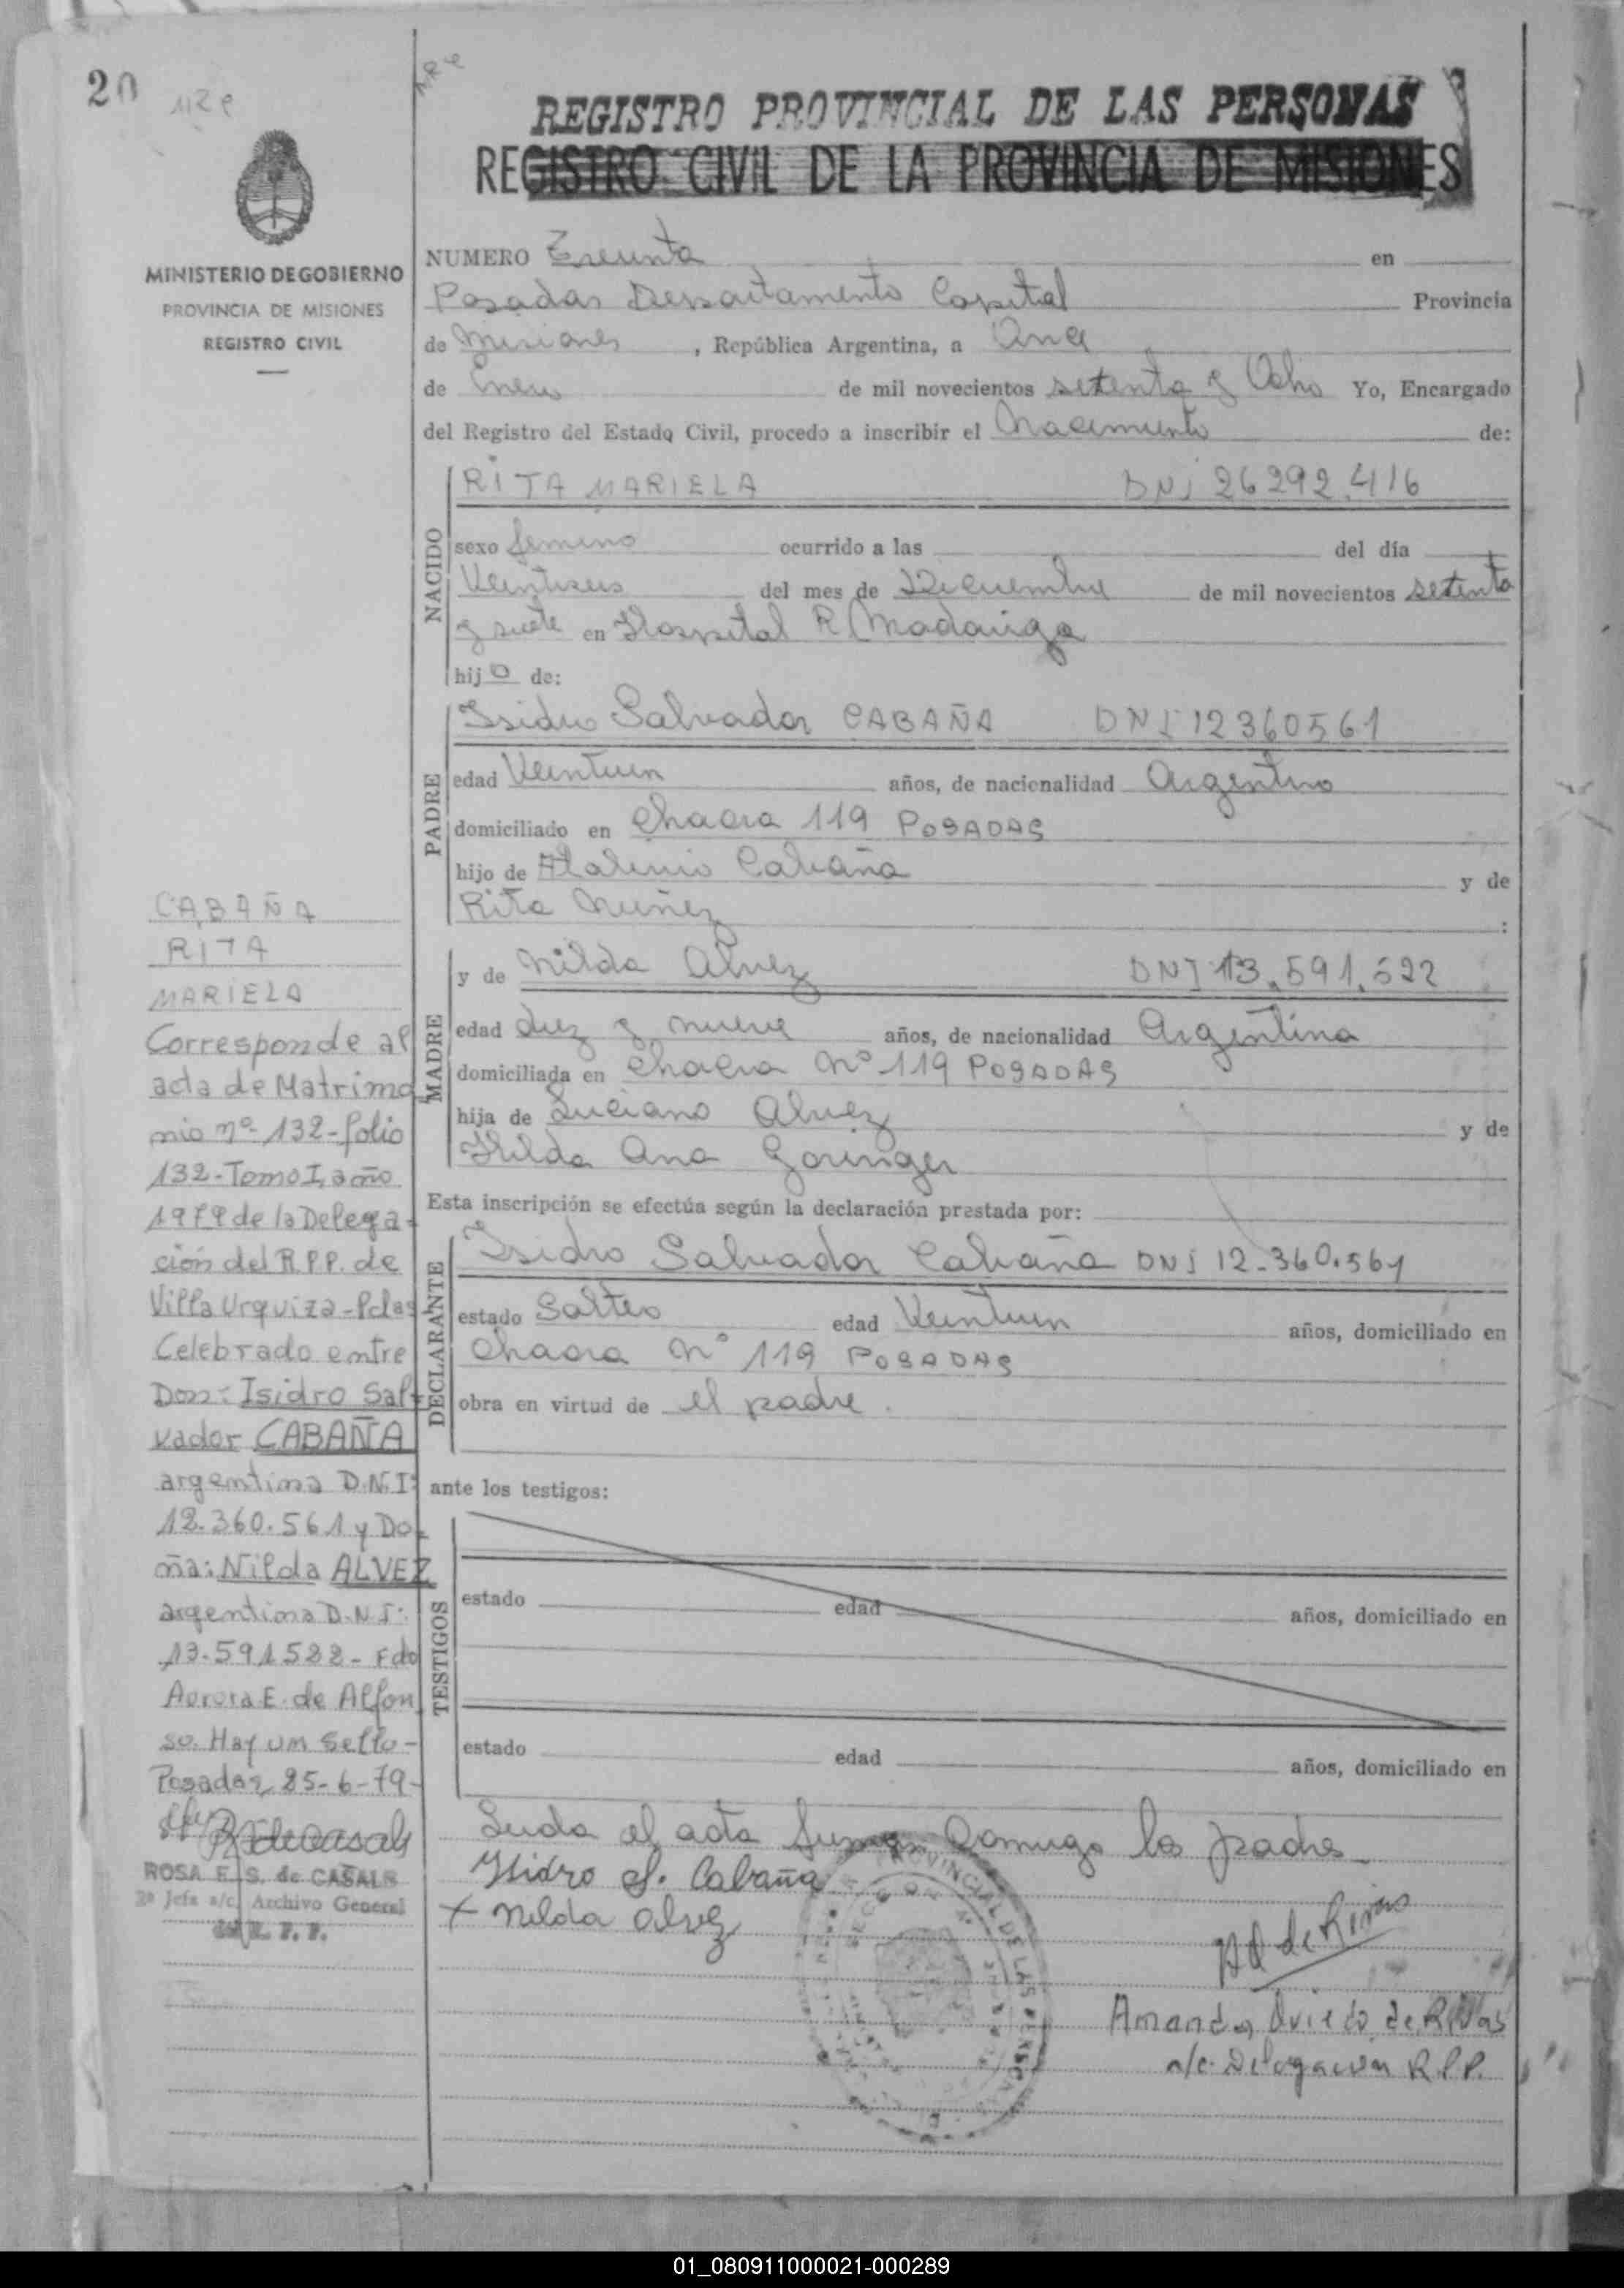 20
REGISTRO PROVINCIAL DE LAS PERSONAS
REGISTRO CIVIL DE LA PROVINCIA DE MISIONES
MINISTERIO DE GOBIERNO
PROVINCIA DE MISIONES
REGISTRO CIVIL
NUMERO Treinta en
Posadas Departamento Capital Provincia
de Misiones, República Argentina, a Once
de Enero de mil novecientos setenta y Ocho Yo, Encargado
del Registro del Estado Civil, procedo a inscribir el Nacimiento de:
NACIDO
RITA MARIELA DNI 26292.416
sexo femenino ocurrido a las del día
Veintiseis del mes de Diciembre de mil novecientos setenta
y siete en Hospital R Madariaga
hijo de:
PADRE
Isidro Salvador CABAÑA DNI 12360561
edad Veintiun años, de nacionalidad Argentino
domiciliado en Chacra 119 POSADAS
hijo de Cabaña y de
Rita Nuñez :
MADRE
y de Nilda Alvez DNI 13.591.522
edad diez y nueve años, de nacionalidad Argentina
domiciliada en Chacra Nº 119 POSADAS
hija de Luciano Alvez y de
Hilda Ana Goringer
Esta inscripción se efectúa según la declaración prestada por:
DECLARANTE
Isidro Salvador Cabaña DNI 12-360.561
estado Soltero edad Veintiun años, domiciliado en
Chacra Nº 119 POSADAS
obra en virtud de el padre.
ante los testigos:
TESTIGOS
estado edad años, domiciliado en
estado edad años, domiciliado en
Leida el acta firman Conmigo los padres
Isidro S. Cabaña
+ Nilda alvez
A O de Rivas
Amanda Oviedo de Rivas
a/c. Delegacion R.P.P.
CABAÑA
RITA
MARIELA
Corresponde al
acta de Matrimo
nio nº 132-folio
132-Tomo I, año
1979 de la Delega-
ción del R.P.P. de
Villa Urquiza-Pdas
Celebrado entre
Don: Isidro Sal-
vador CABAÑA
argentino D.N.I:
12.360.561 y Do-
ña: Nilda ALVEZ
argentina D.N.I:
13.591522- Fdo
Aurora E. de Alfon
so. Hay un Sello-
Posadas, 25-6-79-
ROSA E. S. de CASALS
2ª Jefa a/c. Archivo General
del R. P. P.
01_080911000021-000289